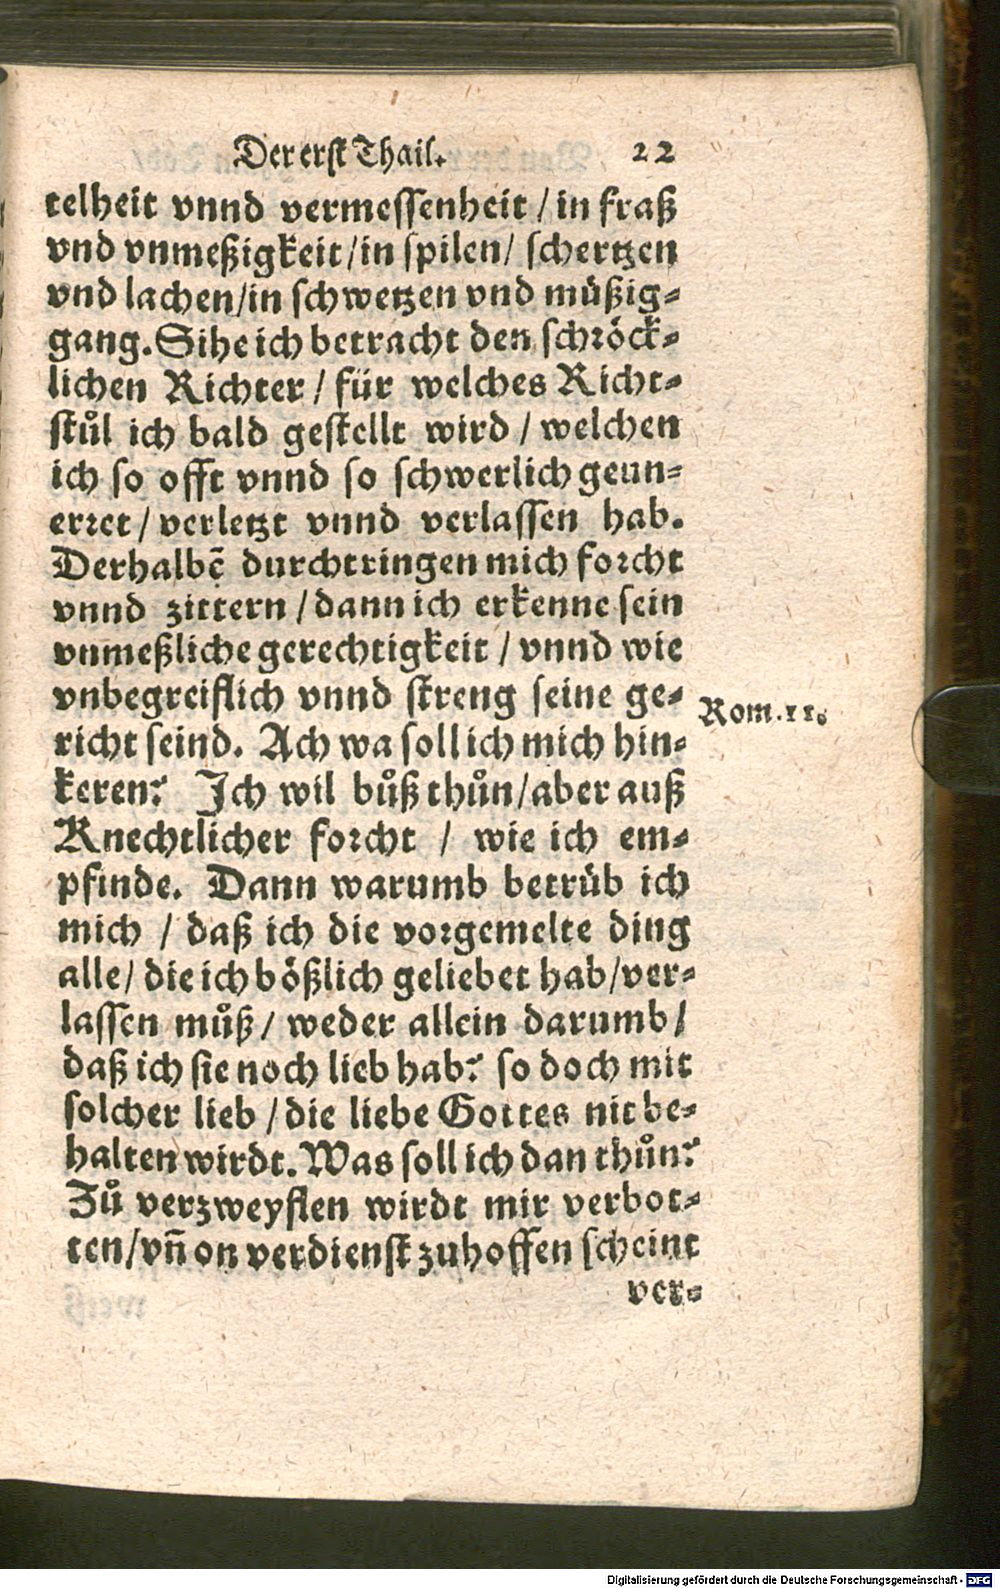 Der erst Thail. 22
telheit vnnd vermessenheit / in fraß
vnd vnmeßigkeit / in spilen / schertzen
vnd lachen / in schwetzen vnd müßig-
gang. Sihe ich betracht den schröck-
lichen Richter / für welches Richt-
stůl ich bald gestellt wird / welchen
ich so offt vnnd so schwerlich geun-
erret / verletzt vnnd verlassen hab.
Derhalbẽ durchtringen mich forcht
vnnd zittern / dann ich erkenne sein
vnmeßliche gerechtigkeit / vnnd wie
vnbegreiflich vnnd streng seine ge-
Rom. 11.
richt seind. Ach wa soll ich mich hin-
keren? Ich wil bůß thůn / aber auß
Knechtlicher forcht / wie ich em-
pfinde. Dann warumb betrüb ich
mich / daß ich die vorgemelte ding
alle / die ich bößlich geliebet hab / ver-
lassen můß / weder allein darumb /
daß ich sie noch lieb hab? so doch mit
solcher lieb / die liebe Gottes nit be-
halten wirdt. Was soll ich dan thůn?
Zů verzweyflen wirdt mir verbot-
ten / vñ on verdienst zuhoffen scheint
ver-
Digitalisierung gefördert durch die Deutsche Forschungsgemeinschaft - DFG